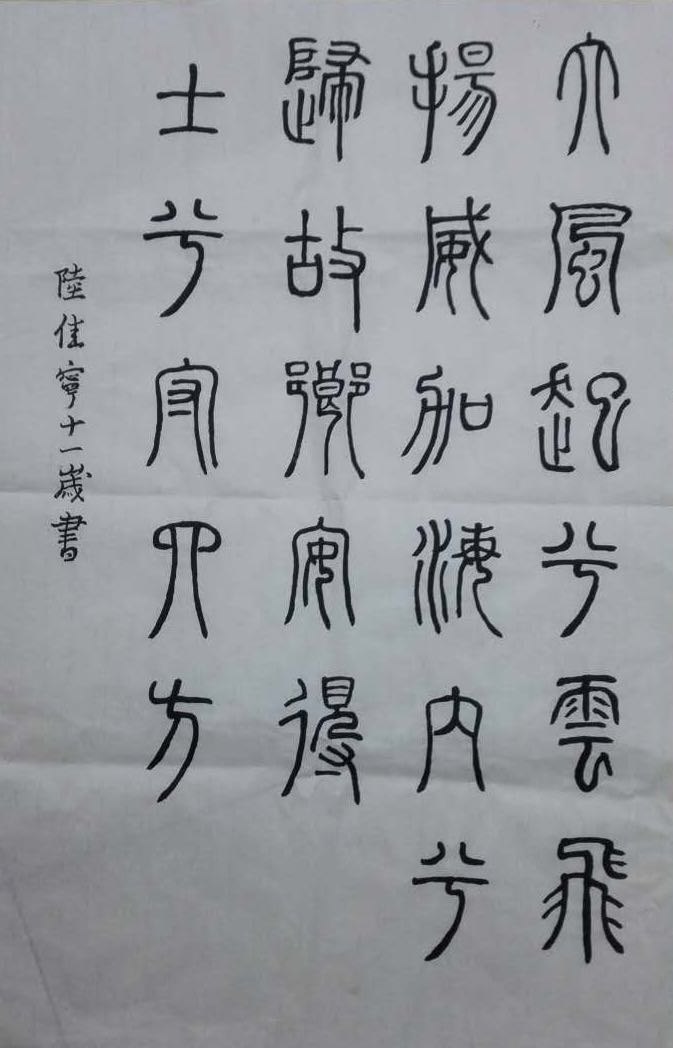 大風起兮雲飛
揚威加海內兮
歸故鄉安得
士兮守四方
陸佳寧十一歲書